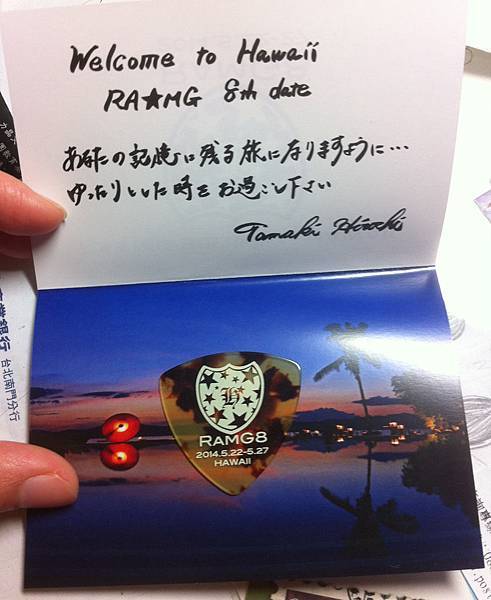 Welcome to Hawaii
RA★MG 8th date
あなたの記憶に残る旅になりますように…
ゆったりとした時をお過ごし下さい
Tamaki Hiroshi
H
RAMG8
2014.5.22-5.27
HAWAII
業銀行 台北南門分行